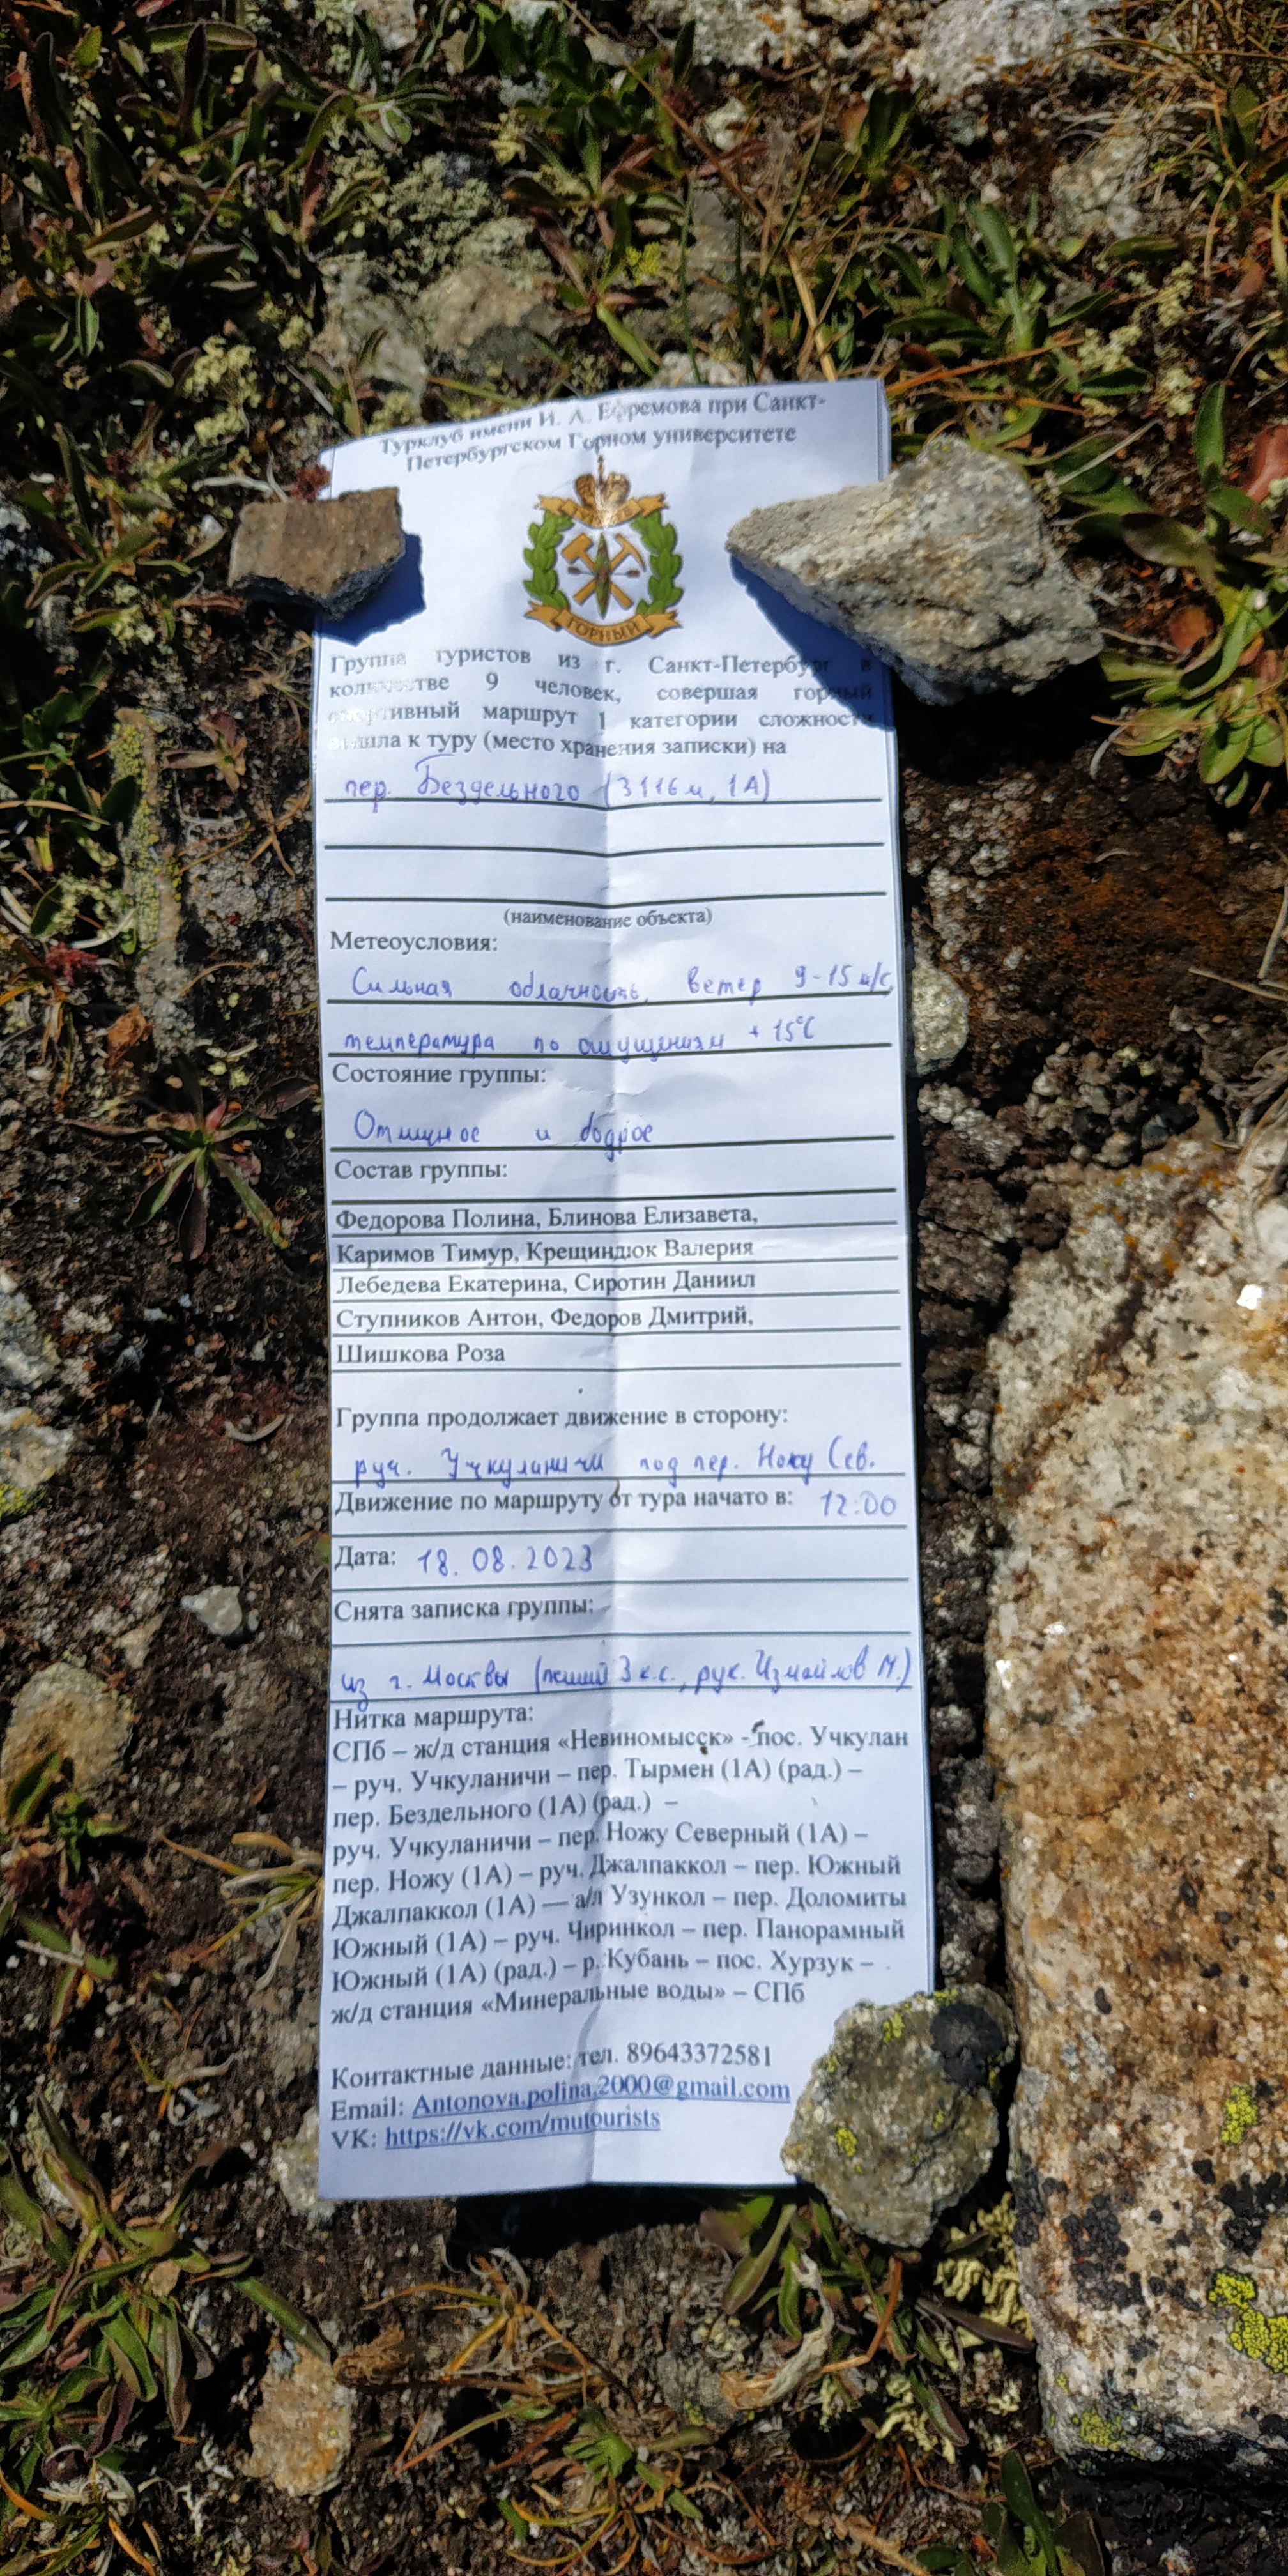 Турклуб имени И. А. Ефремова при Санкт-
Петербургском Горном университете
ГОРНЫЙ
Группа туристов из г. Санкт-Петербург в
количестве 9 человек, совершая горный
спортивный маршрут 1 категории сложности
вышла к туру (место хранения записки) на
пер. Бездельного (3116м, 1А)
(наименование объекта)
Метеоусловия:
Сильная облачность, ветер 9-15 м/с,
температура по ощущениям +15°С
Состояние группы:
Отличное и бодрое
Состав группы:
Федорова Полина, Блинова Елизавета,
Каримов Тимур, Крещиндюк Валерия
Лебедева Екатерина, Сиротин Даниил
Ступников Антон, Федоров Дмитрий,
Шишкова Роза
Группа продолжает движение в сторону:
руч. Учкуланичи под пер. Ножу Сев.
Движение по маршруту от тура начато в: 12:00
Дата: 18.08.2023
Снята записка группы:
из г. Москвы (пеший 3 к.с., рук. Измайлов М.)
Нитка маршрута:
СПб – ж/д станция «Невиномысск» - пос. Учкулан
– руч. Учкуланичи – пер. Тырмен (1А) (рад.) –
пер. Бездельного (1А) (рад.) –
руч. Учкуланичи – пер. Ножу Северный (1А) –
пер. Ножу (1А) – руч. Джалпаккол – пер. Южный
Джалпаккол (1А) — а/л Узункол – пер. Доломиты
Южный (1А) – руч. Чиринкол – пер. Панорамный
Южный (1А) (рад.) – р. Кубань – пос. Хурзук –
ж/д станция «Минеральные воды» – СПб
Контактные данные: тел. 89643372581
Email: Antonova.polina.2000@gmail.com
VK: https://vk.com/mutourists